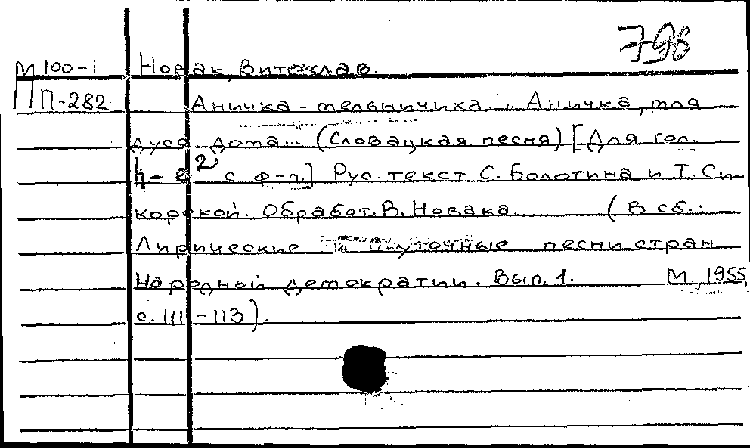 798
М 100-1 Новак, Витезслав.
П-282 Аничка-мельничика... Аничка, моя
душа дома... (Словацкая песня) [Для гол.
h-e² с ф-п.] Рус. текст С. Болотина и Т. Си-
корской. Обработ. В. Новака. (В сб.:
Лирические и шуточные песни стран
Народной демократии. Вып. 1. М, 1955,
с. 111-113).